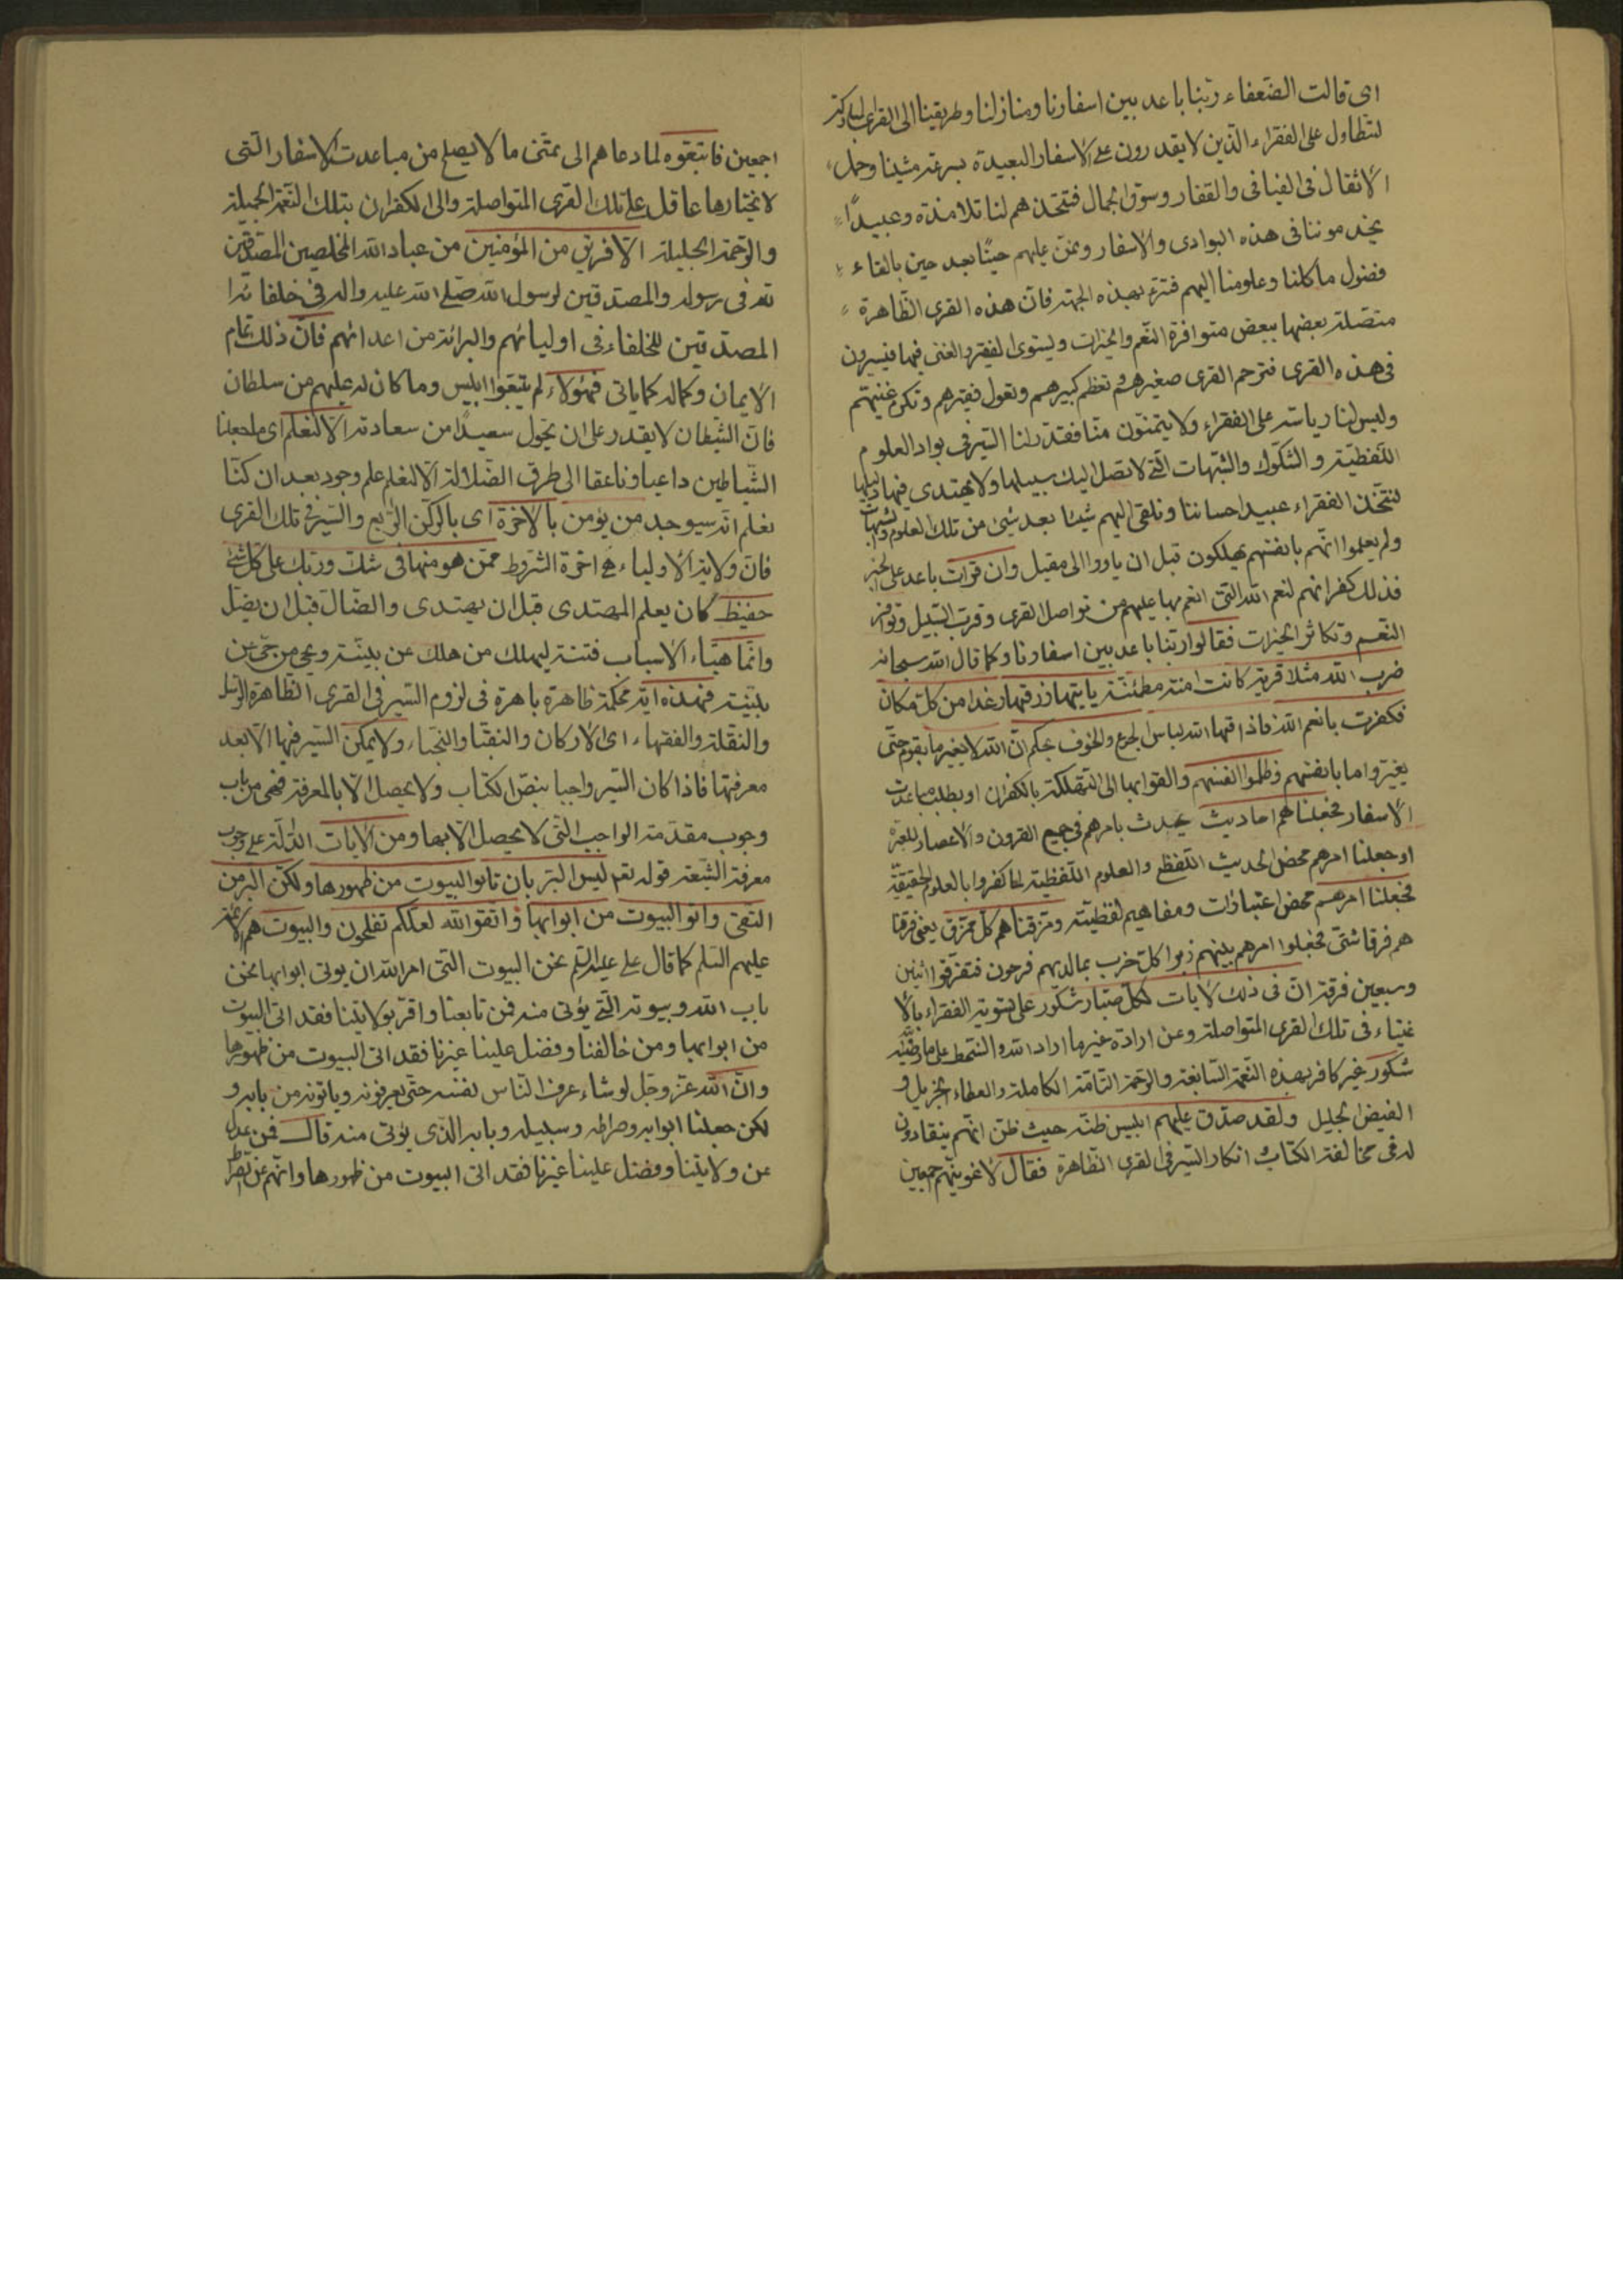 اى قالت الضعفاء ربنا باعد بين اسفارنا ومنازلنا وطريقنا الى القرى
لنتطاول على الفقراء الذين لا يقدرون على الاسفار البعيدة بسرعة مشينا وحمل
الاثقال فى الفيافى والقفار وسوق الجمال فنتخذهم لنا تلامذة وعبيدًا
يخدموننا فى هذه البوادى والاسفار ونمن عليهم حينًا بعد حين بالقاء
فضول ماكلنا وعلومنا اليهم بهذه الجهة فان هذه القرى الظاهرة
متصلة بعضها ببعض متوافرة النعم والخيرات ويستوى الفقير والغنى فيها فيسيرون
فى هذه القرى فترحم القرى صغيرهم وتعظم كبيرهم وتعول فقيرهم وتكرم غنيهم
وليس لنا رياسة على الفقراء ولا يتمنون منا فقدر لنا السير فى بواد العلوم
اللفظية والشكوك والشبهات التى لا تصل اليك سبيلها ولا يهتدى فيها دليلها
لنتخذ الفقراء عبيد احساننا ونلقى اليهم شيئا بعد شىء من تلك العلوم والشبهات
ولم يعلموا انهم بانفسهم يهلكون قبل ان ياووا الى مقيل وان قرات باعد على الخبر
فذلك كفرانهم لنعم الله التى انعم بها عليهم من تواصل القرى وقرب السبيل وتوافر
النعم وتكاثر الخيرات فقالوا ربنا باعد بين اسفارنا وكما قال الله سبحانه
ضرب الله مثلا قرية كانت امنة مطمئنة ياتيها رزقها رغدا من كل مكان
فكفرت بانعم الله فاذاقها الله لباس الجوع والخوف بحكم ان الله لا يغير ما بقوم حتى
يغيروا ما بانفسهم وظلموا انفسهم والقوا بها الى التهلكة بالكفران او بطلب مباعدت
الاسفار فجعلناهم احاديث يحدث بامرهم فى جميع القرون والاعصار للعبرة
او جعلنا امرهم محض الحديث اللفظى والعلوم اللفظية لما كفروا بالعلوم الحقيقية
فجعلنا امرهم محض اعتبارات ومفاهيم لفظية ومزقناهم كل ممزق يعنى فرقنا
هم فرقا شتى فجعلوا امرهم بينهم زبرا كل حزب بما لديهم فرحون فتفرقوا اثنين
وسبعين فرقة ان فى ذلك لايات لكل صبار شكور على تسوية الفقراء بالا
غنياء فى تلك القرى المتواصلة وعن ارادة غير ما اراد الله والسخط على ما رضيه
شكور غير كافر بهذه النعمة السابغة والرحمة التامة الكاملة والعطاء الجزيل و
الفيض الجليل ولقد صدق عليهم ابليس ظنه حيث ظن انهم ينقادون
له فى مخالفة الكتاب انكار السير فى القرى الظاهرة فقال لاغوينهم اجمعين
اجمعين فاتبعوه لما دعاهم الى تمنى ما لا يصلح من مباعدت الاسفار التى
لا يختارها عاقل على تلك القرى المتواصلة والى الكفران بتلك النعمة الجميلة
والرحمة الجليلة الا فريق من المؤمنين من عباد الله المخلصين المصدقين
لله فى رسوله والمصدقين لرسول الله صلى الله عليه واله فى خلفائه ا
المصدقين للخلفاء فى اوليائهم والبرائة من اعدائهم فان ذلك تمام
الايمان وكماله كما ياتى فهؤلاء لم يتبعوا ابليس وما كان له عليهم من سلطان
فان الشيطان لا يقدر على ان يحول سعيدًا من سعادته الا لنعلم اى ما جعلنا
الشياطين داعيا وناعقا الى طرق الضلالة الا لنعلم علم وجود بعد ان كنا
نعلم انه سيوجد من يؤمن بالاخرة اى بالركن الرابع والسير فى تلك القرى
فان ولاية الاولياء هى اخرة الشروط ممن هو منها فى شك وربك على كل شىء
حفيظ كان يعلم المهتدى قبل ان يهتدى والضال قبل ان يضل
وانما هيأ الاسباب فتنة ليهلك من هلك عن بينة ويحيى من حى عن
بينة فهذه اية محكمة ظاهرة باهرة فى لزوم السير فى القرى الظاهرة الرسل
والنقلة والفقهاء اى الاركان والنقبا والنجباء ولا يمكن السير فيها الا بعد
معرفتها فاذا كان السير واجبا بنص الكتاب ولا يحصل الا بالمعرفة فهى من باب
وجوب مقدمة الواجب التى لا يحصل الا بها ومن الايات الدالة على وجوب
معرفة الشيعة قوله تعم ليس البر بان تاتوا البيوت من ظهورها ولكن البر من
اتقى واتوا البيوت من ابوابها واتقوا الله لعلكم تفلحون والبيوت هم الائمة
عليهم السلم كما قال على عليه السلم نحن البيوت التى امر الله ان يؤتى ابوابها نحن
باب الله وبيوته التى يؤتى منه فمن تابعنا واقر بولايتنا فقد اتى البيوت
من ابوابها ومن خالفنا وفضل علينا غيرنا فقد اتى البيوت من ظهورها
وان الله عز وجل لو شاء عرف الناس نفسه حتى يعرفونه وياتونه من بابه و
لكن جعلنا ابوابه وصراطه وسبيله وبابه الذى يؤتى منه قال فمن عدل
عن ولايتنا وفضل علينا غيرنا فقد اتى البيوت من ظهورها وانهم عن الصراط